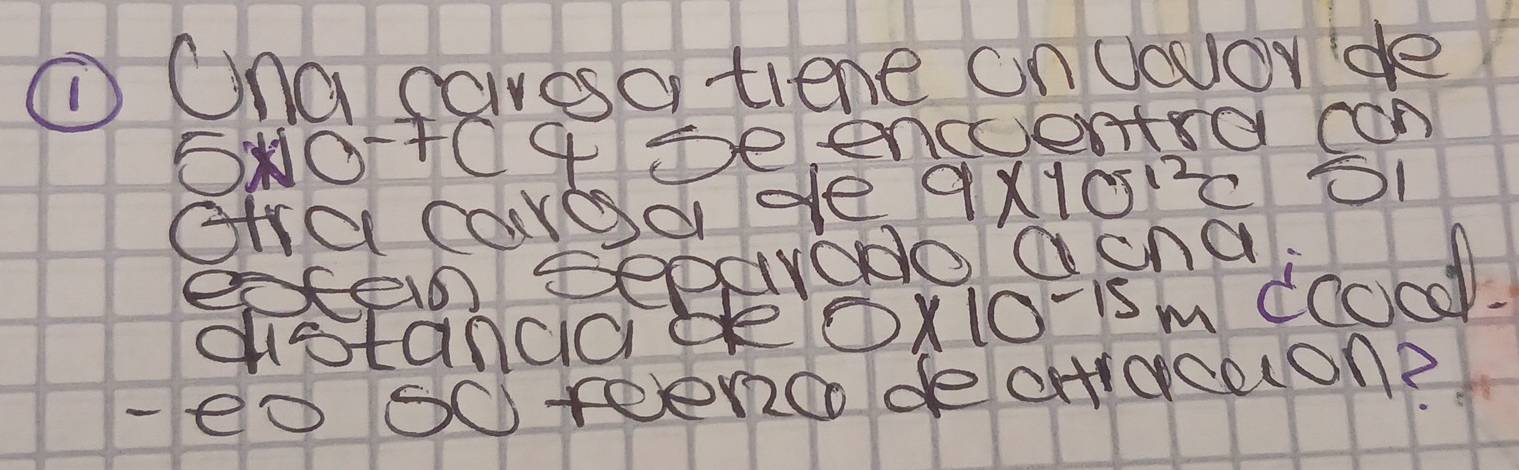 ① Una carga tiene un valor de
5x10-7C y se encuentra con
otra carga de 9x10¹²c si
estan separado a una
distancia de 0x10-15m ¿cual
- es su fuerza de atraccion?